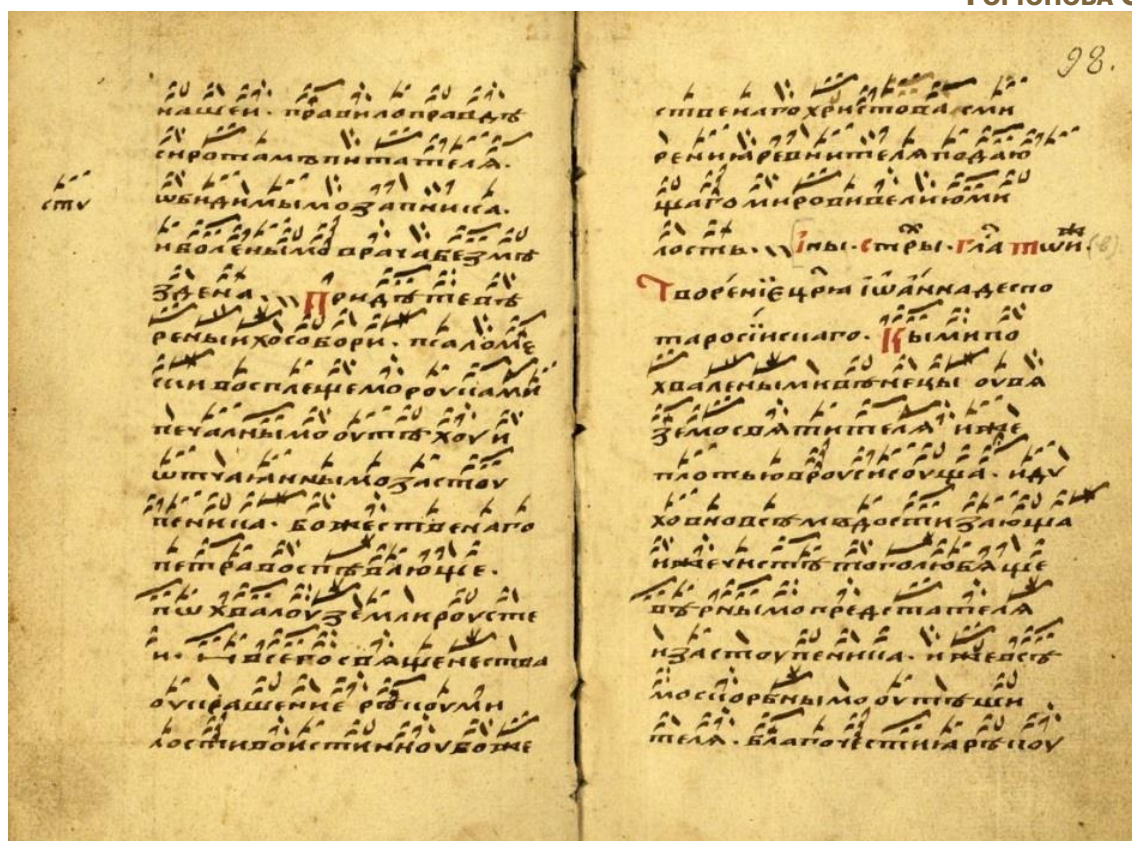 нашеи · правило правдѣ
сиротамъ питателя ·
ѡбидимымо заптника ·
стѹ
и воленымо врача безмѣ
здена · Придѣте вѣ
рены ихо собори · псаломе
ски восплещемо роуками
печалнымо оутѣхоу и
ѿтчаꙗнны мо застоу
пеника · божественаго
петра воспѣвающе ·
похвалоу земли роусте
и · и всего священества
оукрашение рѣкоу ми
лости воистинноу боже
98.
ственаго христова сми
рениꙗ ревнителя подаю
щаго мирови велию ми
лость ·
Іны · стр҃ы · гл҃а тѡи ·
Творенїе цр҃ꙗ іѡанна деспо
та росїискаго · Кыми по
хвалеными вѣнецы оувя
земо святителя иже
плотью в роуси соуща · и дѹ
ховно всѣмъ достизающа
иже чистѣ того любяще
вѣрнымо предстателя
и застоупеника · иже всѣ
мо скорбнымо оутѣши
теля · благочестиꙗ рѣкоу